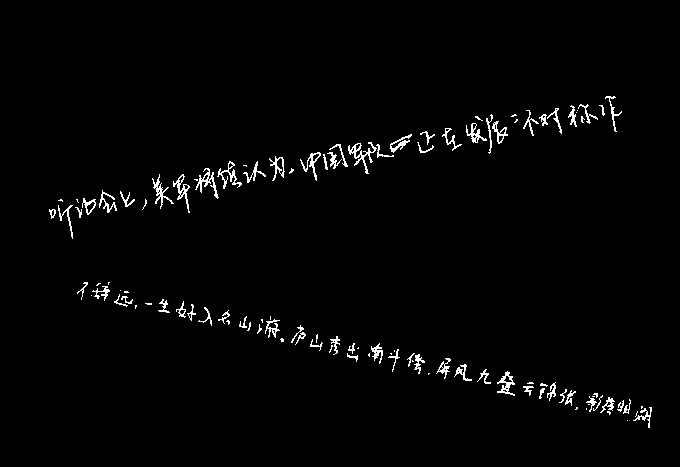 听证会上，美军将领认为，中国军队正在发展“不对称作
不辞远，一生好入名山游。庐山秀出南斗傍，屏风九叠云锦张，影落明湖